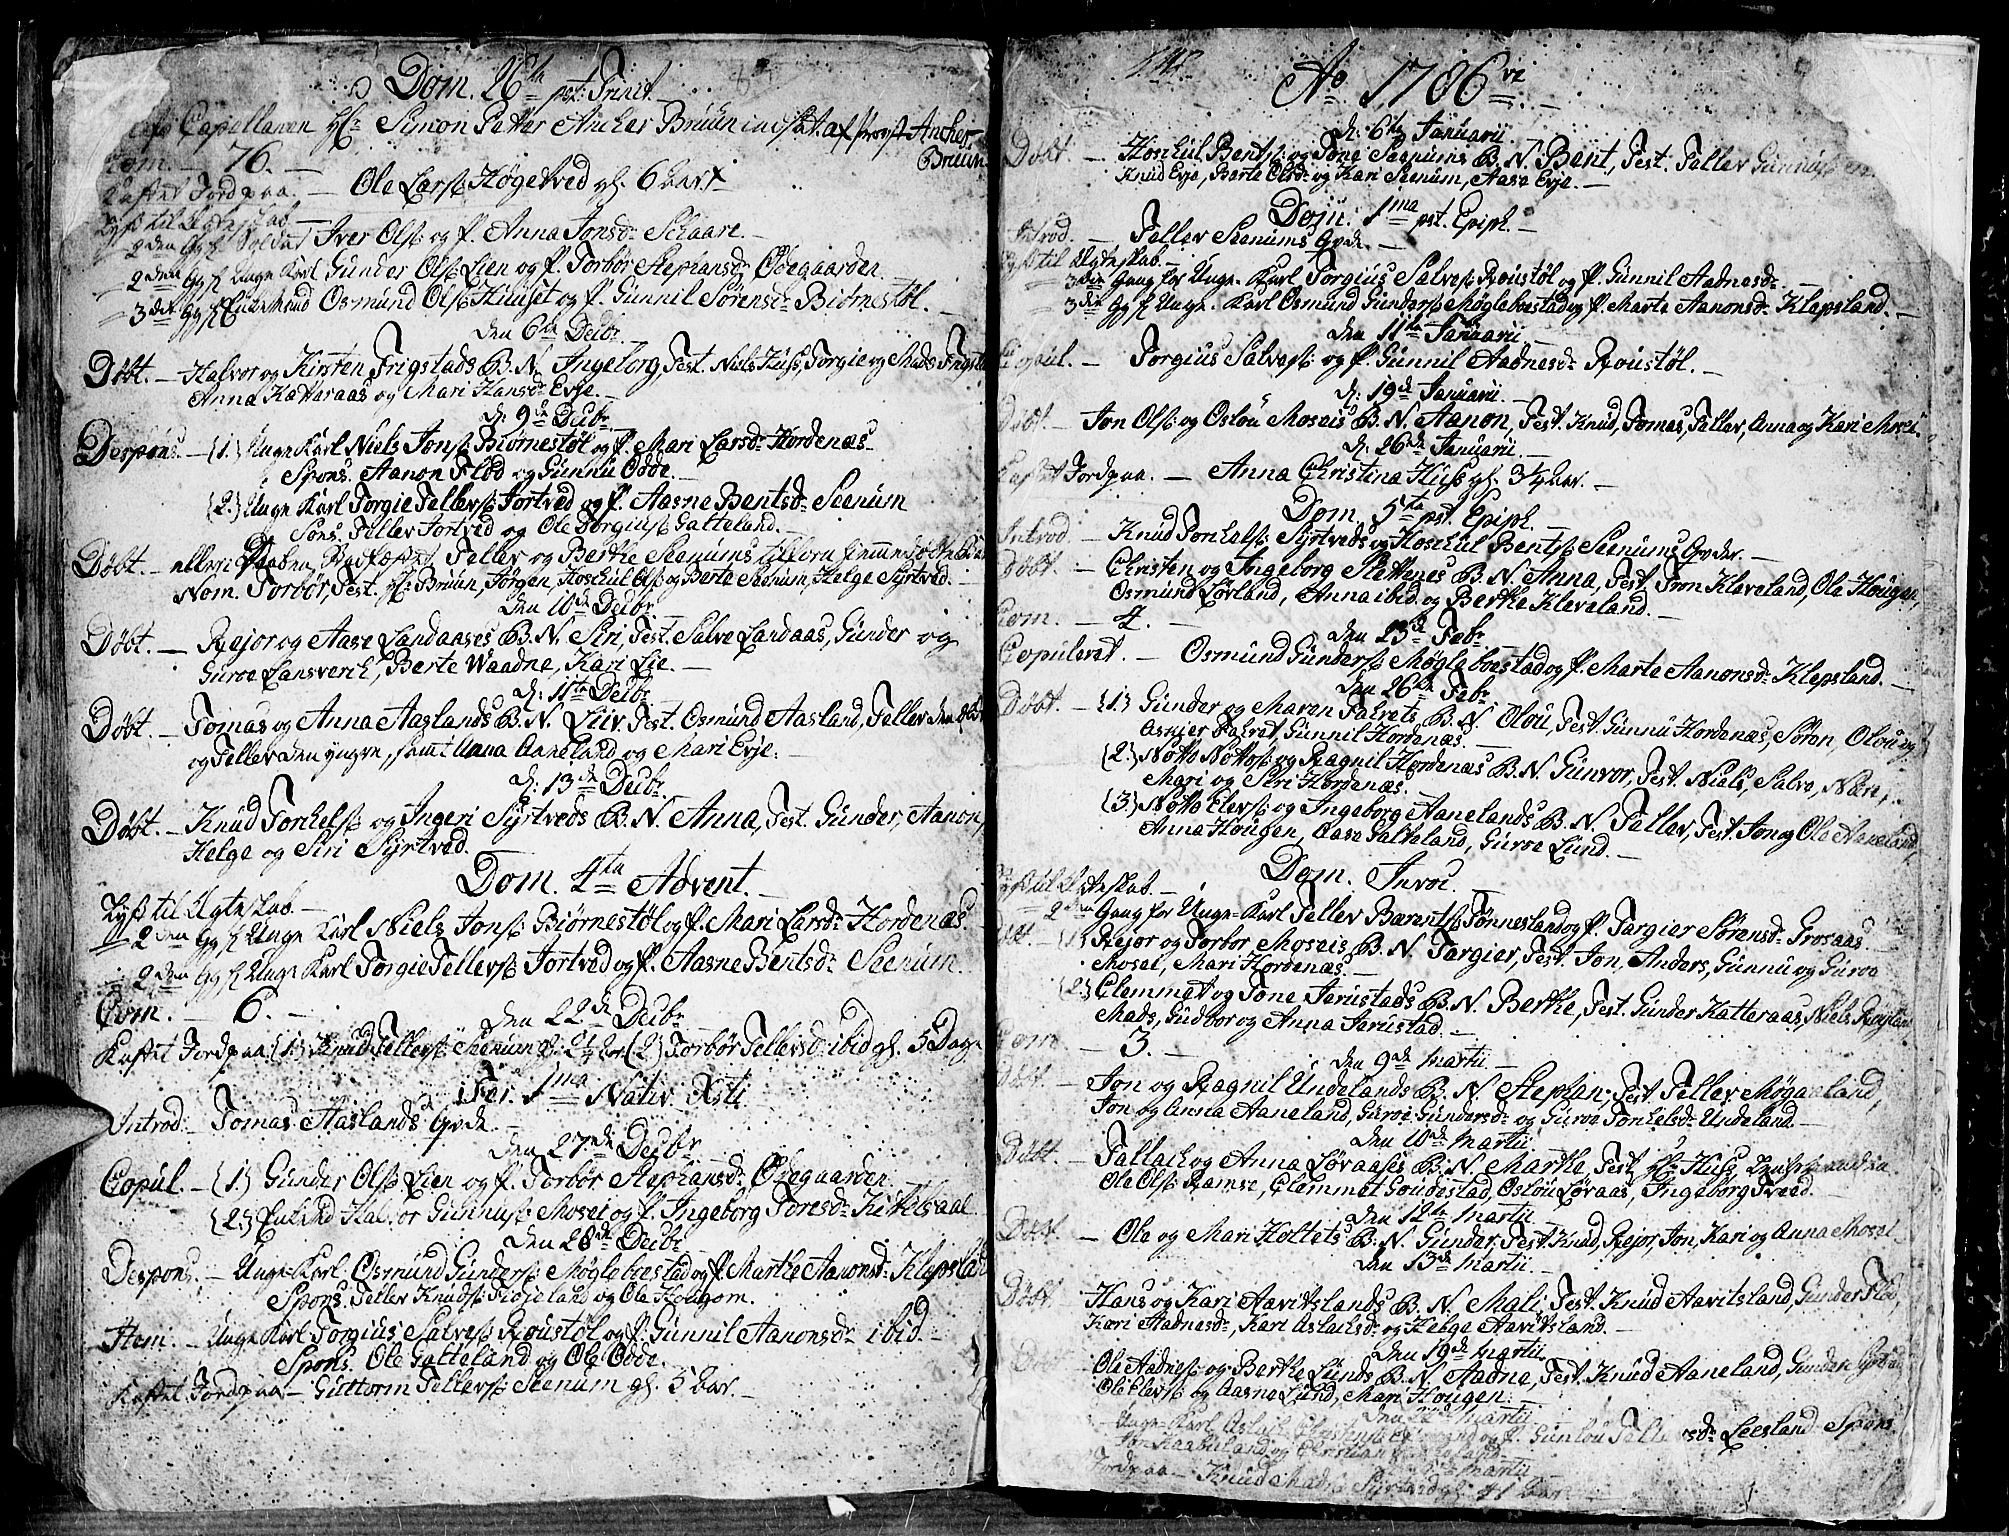 Dom. 26ta pst. Trinit.
Capellanen Hr. Simon Petter Ancher Bruun indsat af Provst Ancher
Bruun
Com. — 76. —
Kastet Jord paa. — Ole Lars: Høgetved gl. 6 Aar
Lyst til Ægteskab. —
2den Gg f. Soldat Iver Ols: og P. Anna Jonsd: Schaare. —
2den Gg f. Unge Karl Gunder Ols: Lien og P. Torbør Stephansd: Ødegaarden. —
3die Gg f. Enkemand Osmund Ols: Kiuset og P. Gunnil Sørensd: Biørnestøl. —
den 6te Decbr
Døbt. — Halvor og Kirsten Frigstads B. N. Ingeborg, Test. Niels Huss, Torgie og Mads Frigstad
Anna Katteraas og Mari Hansd: Evje. —
d. 9de Decbr
Despons. — (1.) Unge Karl Niels Jons: Biørnestøl og P. Mari Larsd: Hordenæs
Spons. Aanon Flød og Gunnu Odde. —
(2.) Unge Karl Torgie Tellers: Tortved og P. Aasne Bentsd: Seenum
Spons. Teller Tortved og Ole Torgius: Galteland. —
Døbt. — Teller og Berthe Seenums
Nom. Torbør, Test. Hr. Bruun, Jørgen, Hoschul Ols: og Berte Seenum, Helge Syrtved. —
den 10de Decbr
Døbt. — Rejor og Aase Landaases B. N. Siri, Test. Salve Landaas, Gunder og
Guroe Lansverk, Berte Waadne, Kari Lie. —
d. 11te Decbr
Døbt. — Tomas og Anna Aaslands B. N. Liiv, Test. Osmund Aasland, Teller den
og Teller den yngre, samt Anna Aaneland og Mari Evje. —
d. 13de Decbr
Døbt. — Knud Tonkels: og Ingeri Syrtveds B. N. Anna, Test. Gunder, Aanon,
Helge og Siri Syrtved.
Dom. 4ta Advent. —
Lyst til Ægteskab. —
2den Gg f. Unge Karl Niels Jons: Biørnestøl og P. Mari Larsd: Hordenæs.
2den Gg f. Unge Karl Torgie Tellers: Tortved og P. Aasne Bentsd: Seenum.
Com. — 6. —
den 22de Decbr
Kastet Jord paa (1.) Knud Tellers: Seenum gl. 2¼ Aar (2.) Torbør Tellersd: ibid gl. 5 Dage
Fer. 1ma Nativ. Xsti
Introd. — Tomas Aaslands Qvde. —
den 27de Decbr
Copul. — (1.) Gunder Ols: Lien og P. Torbør Stephansd: Ødegaarden. —
(2.) Halvor Gunnus: Mosei og P. Ingeborg Toresd:
den 28de Decbr
Despons. — Unge Karl Osmund Gunders: Møgleboestad og P. Marthe Aanonsd: Klepsland
Spons. Teller Knuds: Fløjeland og Ole Hougom.
Item. — Unge Karl Torgius Salves: Roustøl og P. Gunnil Aanonsd: ibid. —
Spons. Ole Galteland og Ole Odde. —
Kastet Jord paa — Guttorm Tellers: Seenum gl. 5 Aar. —
Ao 1786ve
d. 6te Januarii
Døbt. — Hoschul Bents: og Tone Seenums B. N. Bent, Test. Teller Gunnus:
Knud Evje, Berte Olsd: og Kari Seenum, Aase Evje. —
Dom. 1ma pst. Epiph. —
Introd. — Teller Seenums Qvde. —
Lyst til Ægteskab. —
3die Gang for Unge Karl Torgius Salves: Roustøl og P. Gunnil Aadnesd: —
3die Gg f. Unge Karl Osmund Gunders: Møgleboestad og P. Marte Aanonsd: Klepsland. —
den 11te Januarii
Copul. — Torgius Salves: og P. Gunnil Aadnesd: Roustøl. —
d. 19de Januarii. —
Døbt. — Jon Ols: og Oslou Moseis B. N. Aanon, Test. Knud, Tomas, Teller, Anna og Kari Mosei
d. 26de Januarii. —
Kastet Jord paa. — Anna Christina Huss gl. ¾ Aar. —
Dom. 5ta pst. Epiph. —
Introd. — Knud Tonkels: Syrtveds og Hoschul Bents: Seenums Qvder. —
Døbt. — Christen og Ingeborg Slettenes B. N. Anna, Test. Tron Klaveland, Ole Hougen,
Osmund Lørland, Anna ibid. og Berthe Kleveland. —
Com. — 4. —
den 23de Febr
Copuleret. — Osmund Gunders: Møgleboestad og P. Marte Aanonsd: Klepsland. —
den 26de Febr
Døbt. — (1.) Gunder og Maren Falrets B. N. Olou, Test. Gunnu Hordenæs, Søren, Olou og
Asgier Falret, Gunnil Hordenæs. —
(2.) Notto Nottos: og Ragnil Hordenæs B. N. Gunvor, Test. Niels, Salve,
Mari og Siri Hordenæs. —
(3.) Notto Elevs: og Ingeborg Aanelands B. N. Teller, Test. Jon og Ole Aaneland,
Anna Hougen, Aase Galteland, Guroe Lund. —
Dom. Invoc. —
Lyst til Ægteskab. —
2den Gang for Unge Karl Teller Bærents: Tønnesland og P. Targier Sørensd: Grosaas.
Døbt. — (1.) Rejor og Torbor Moseis B. N. Targier, Test. Jon, Anders, Gunnu og Guroe
Mosei, Mari Hordenæs. —
(2.) Clemmet og Tone Jarustads B. N. Berthe, Test. Gunder Katteraas, Niels
Mads, Gudbor og Anna Jarustad. —
Com. — 3. —
den 9de Martii. —
Døbt. — Jon og Ragnil Undelands B. N. Stephan, Test. Teller Møgaaland,
Jon og Anna Aaneland, Guroe Gundersd: og Guroe Tonkelsd: Undeland. —
den 10de Martii
Døbt. — Tallach og Anna Løraases B. N. Marthe, Test. Hr. Huss,
Ole Ols: Ramse, Clemmet Goudestad, Oslou Løraas, Ingeborg Tveed. —
den 12te Martii
Døbt. — Ole og Mari Holtets B. N. Gunder, Test. Knud, Rejor, Jon, Kari og Anna Mosei
den 13de Martii. —
Døbt. Hans og Kari Aavitslands B. N. Mali, Test. Knud Aavitsland, Gunder Flød,
Kari Aadnesd:, Kari Aslachsd: og Helge Aavitsland. —
den 19de Martii.
Døbt. Ole Aadnes: og Berthe Lunds B. N. Aadne, Test. Knud Aaneland, Gunder
Ole Elevs: og Aasne Lund, Mari Hougen. —
Martii
Unge Karl og P. Gunlou Leesland Spons.
og Christian
Martii
Jord paa — Knud Syrtved gl. Aar